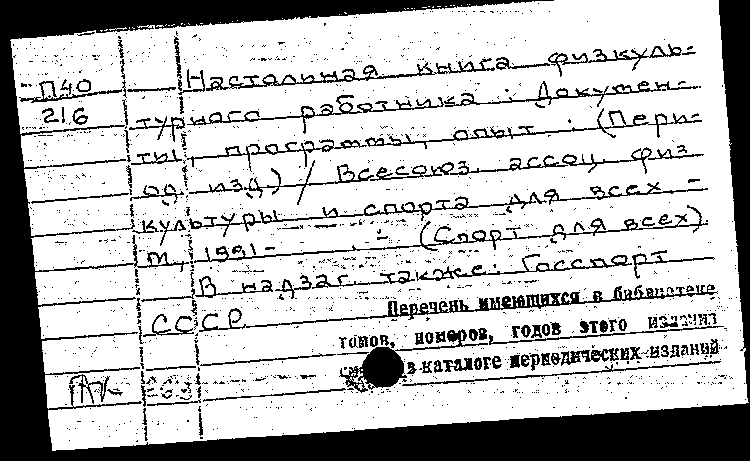 П40
216
Настольная книга физкуль-
турного работника : Докумен-
ты, программы, опыт : (Пери-
од. изд.) / Всесоюз. ассоц. физ
культуры и спорта для всех. -
М., 1991- . - (Спорт для всех).
В надзаг. также: Госспорт
СССР
Перечень имеющихся в библиотеке
томов, номеров, годов этого издания
в каталоге периодических изданий